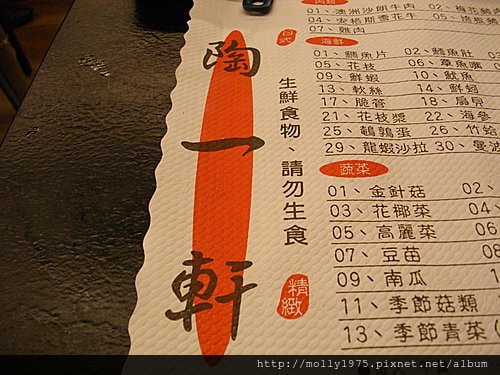 陶一軒
日式
精緻
生鮮食物、請勿生食
肉類
01、澳洲沙朗牛肉 02、梅花豬肉
04、安格斯雪花牛 05、
07、雞肉
海鮮
01、鯛魚片 02、鱈魚社
05、花枝 06、章魚嘴
09、鮮蝦 10、魷魚
13、軟絲 14、鮮蚵
17、脆管 18、扁貝
21、花枝漿 22、海參
25、鵪鶉蛋 26、竹蛟
29、龍蝦沙拉 30、曼波
蔬菜
01、金針菇 02、
03、花椰菜 04、
05、高麗菜 06
07、豆苗 08
09、南瓜 1
11、季節菇類
13、季節青菜(
http://molly1975.pixnet.net/album